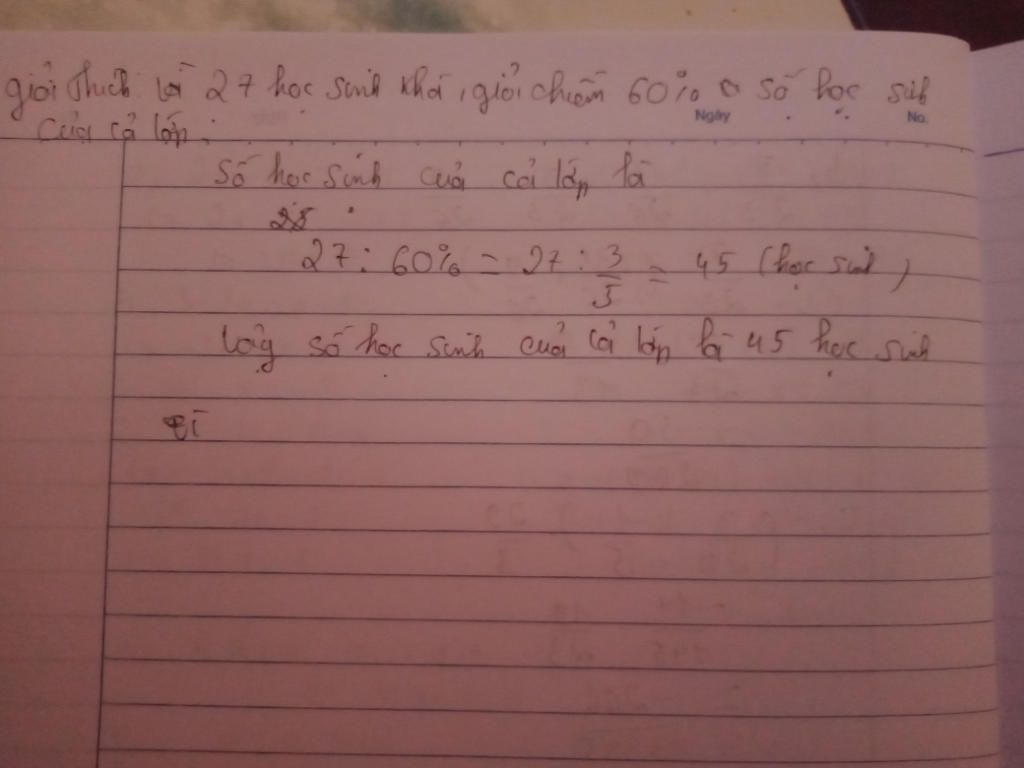 giải thích vì 27 học sinh khá, giỏi chiếm 60% số học sinh
Ngày No.
của cả lớp.
Số học sinh của cả lớp là
27 : 60% = 27 : 3/5 = 45 (học sinh)
Vậy số học sinh của cả lớp là 45 học sinh